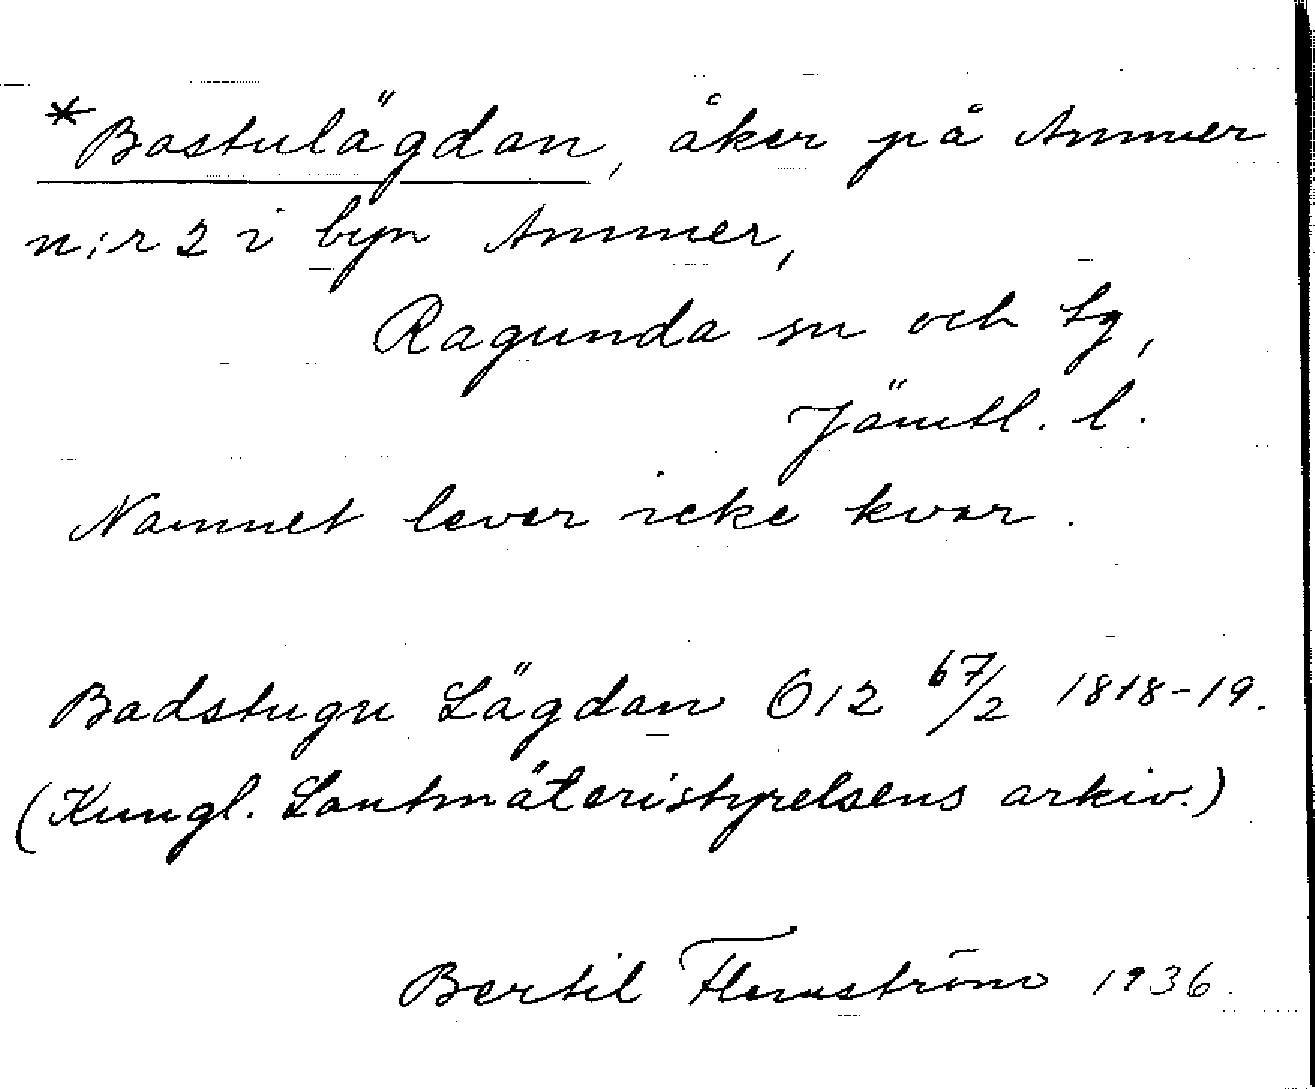 *Bastulägdan, åker på Ammer
n:r 2 i byn Ammer,
Ragunda sn och tg,
Jämtl. l.
Namnet lever icke kvar.
Badstugu Lägdan Ö12 67/2 1818-19.
(Kungl. Lantmäteristyrelsens arkiv.)
Bertil Flemström 1936.